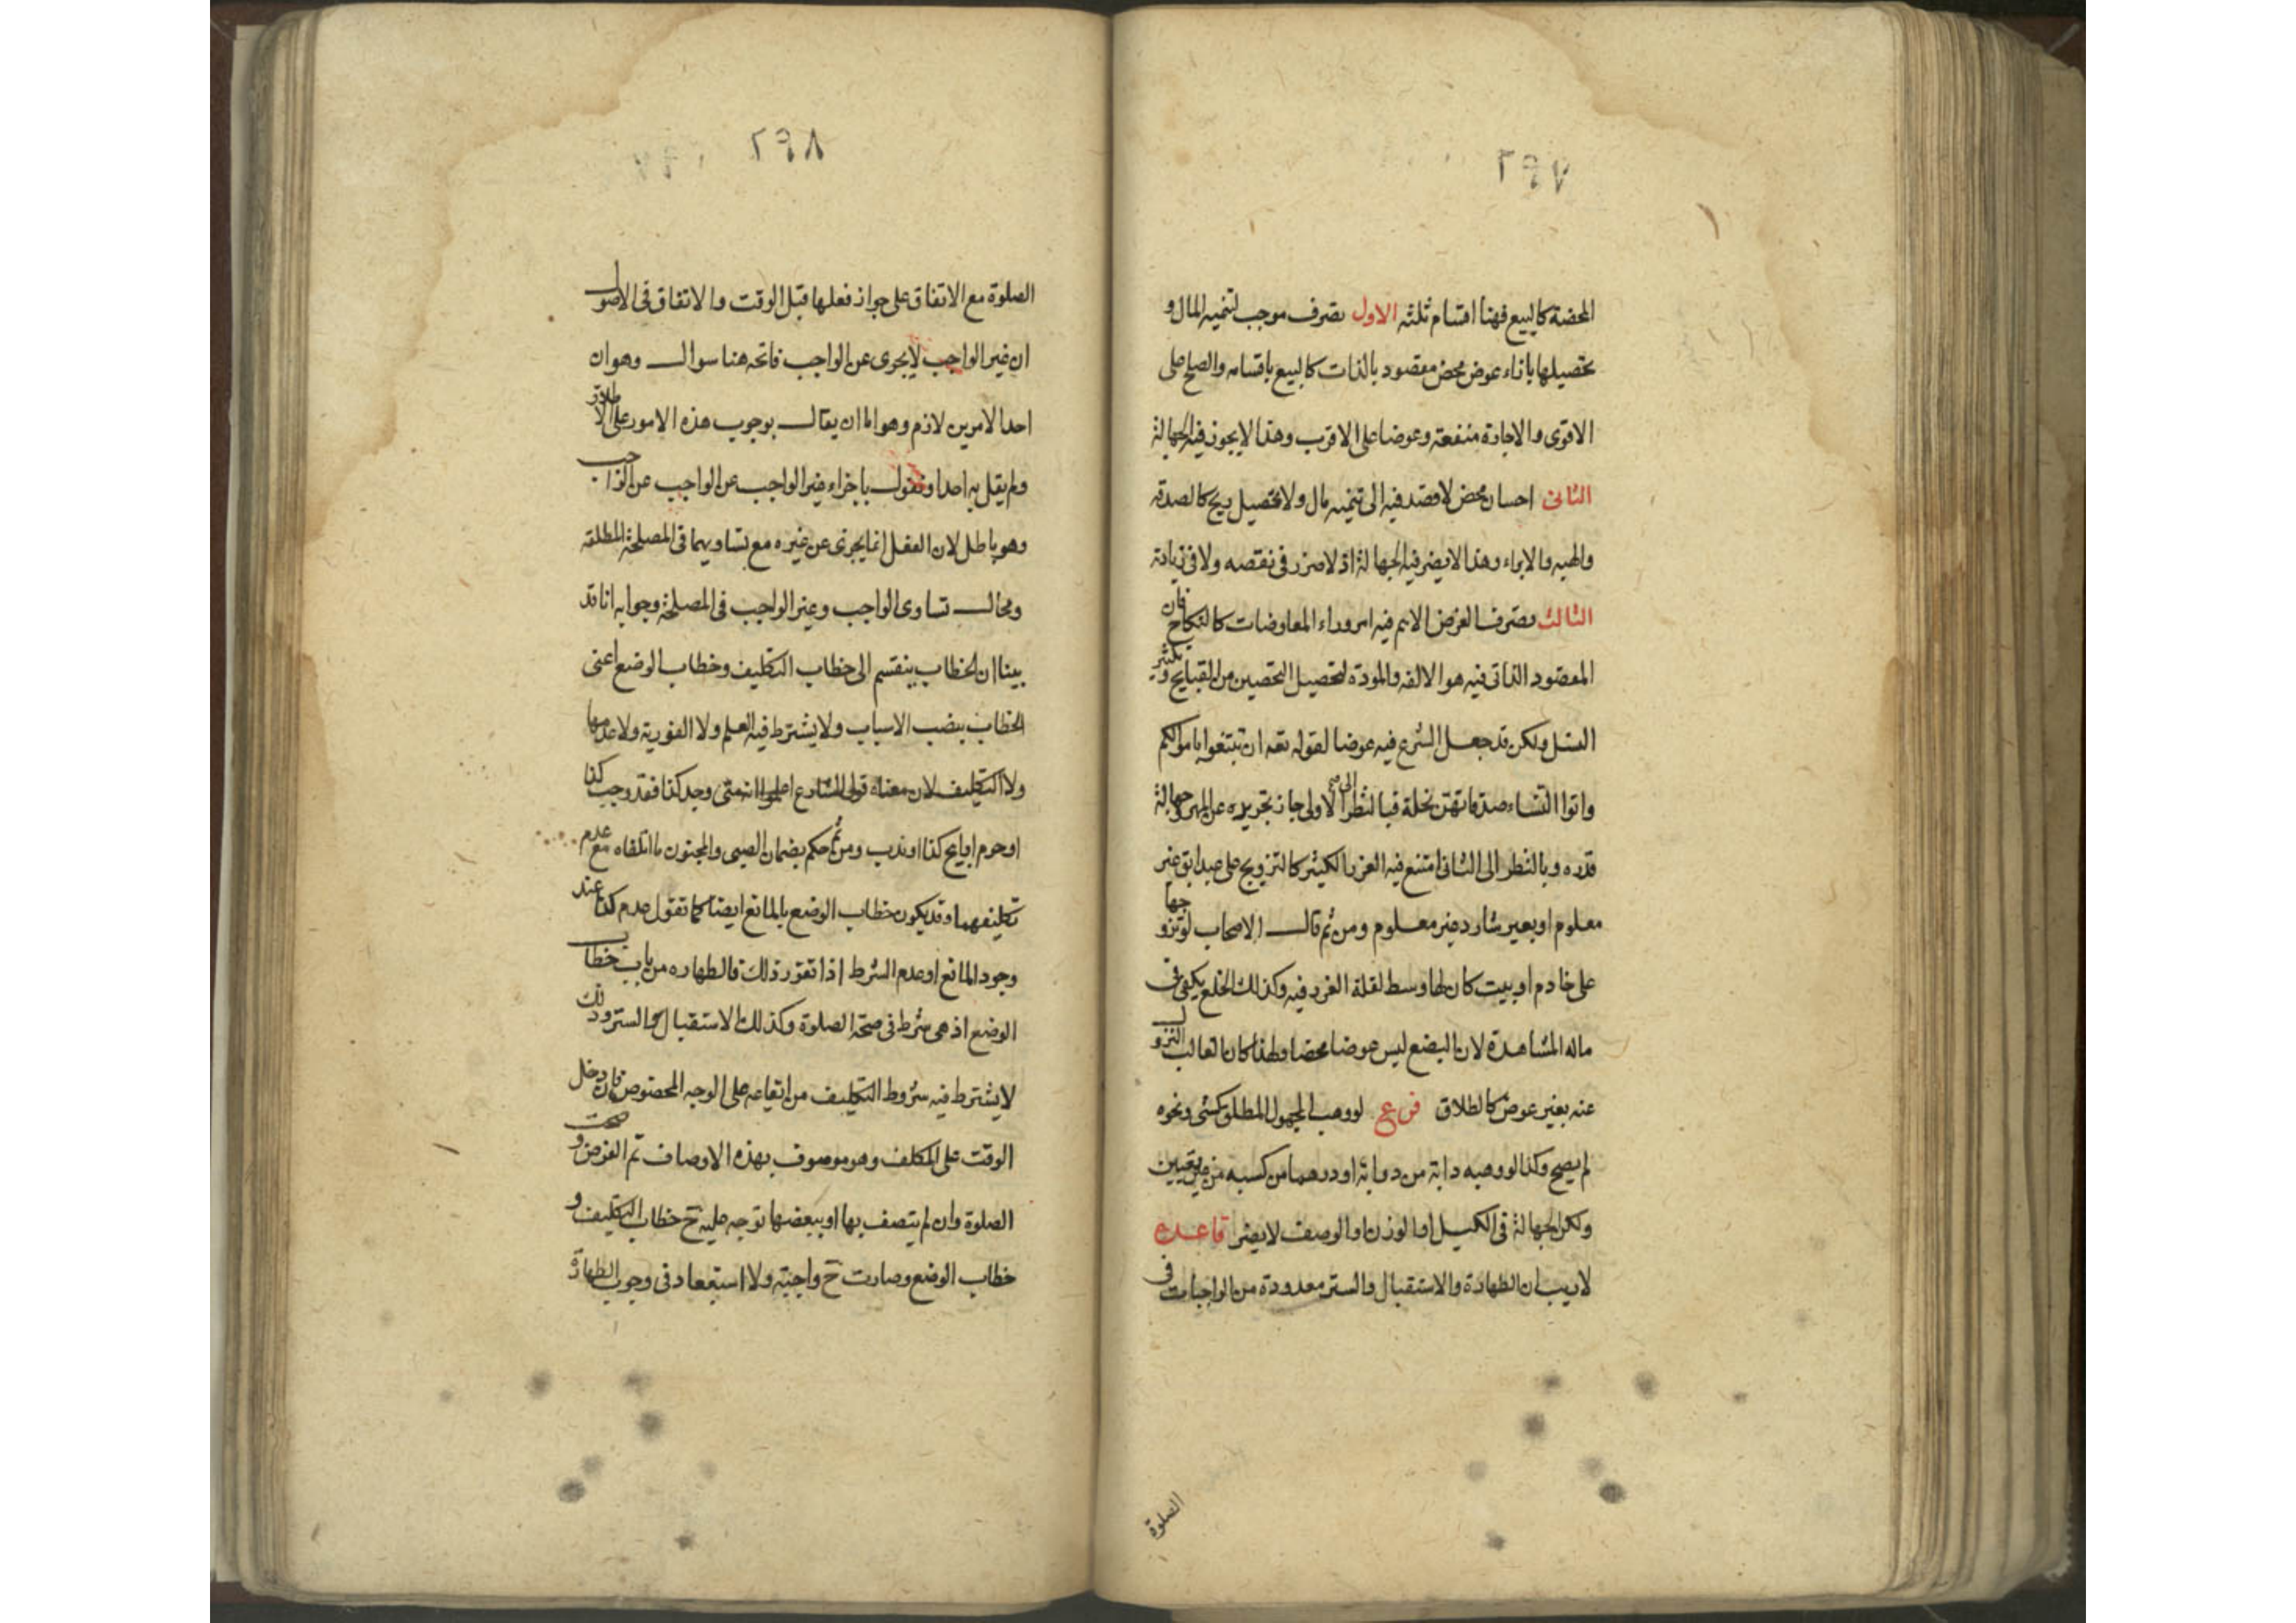 ٢٩٧
المحضة كالبيع فهنا اقسام ثلثه الاول تصرف موجب لتنميه المال و
تحصيلها بازاء عوض محض مقصود بالذات كالبيع باقسامه والصلح على
الاقوى والاجارة منفعته وعوضا على الاقرب وهذا لا يجوز فيه الجهالة
الثانى احسان محض لا قصد فيه الى تنميه مال ولا تحصيل ربح كالصدقه
والهبه والابراء وهذا لا يضر فيه الجهالة اذ لا ضرر فى نقصه ولا فى زيادة
الثالث تصرف الغرض الاهم فيه امر وراء المعاوضات كالنكاح فان
المقصود الذاتى فيه هو الالفه والمودة لتحصيل التحصين من القبايح وتكثير
النسل ولكن قد جعل الشرع فيه عوضا لقوله تعه ان تبتغوا باموالكم
واتوا النساء صدقاتهن نحلة فبالنظر الى الاولى جاز تجريده عن المهر وجهالة
قدره وبالنظر الى الثانى امتنع فيه الغرر الكثير كالتزويج على عبد ابق غير
معلوم او بعير شارد غير معلوم ومن ثم قال الاصحاب لو تزوجها
على خادم او بيت كان لها وسط لقلة الغرر فيه وكذلك الخلع يكفى فى
ماله المشاهدة لان البضع ليس عوضا محضا ولهذا كان الغالب النزول
عنه بغير عوض كالطلاق فرع لو وهب المجهول المطلق كشئ ونحوه
لم يصح وكذا لو وهبه دابة من دوابه او درهما من كسبه من غير تعيين
ولكن الجهالة فى الكيل او الوزن او الوصف لا يضر قاعدة
لا ريب ان الطهارة والاستقبال والستر معدودة من الواجبات فى
الصلوة
٢٩٨
الصلوة مع الاتفاق على جواز فعلها قبل الوقت والاتفاق فى الاصول
ان غير الواجب لا يجزى عن الواجب فاتجه هنا سوال وهو ان
احد الامرين لازم وهو اما ان يقال بوجوب هذه الامور على الاطلاق
ولم يقل به احد او نقول باجزاء غير الواجب عن الواجب
وهو باطل لان الفعل انما يجزى عن غيره مع تساويهما فى المصلحة المطلقه
ومحال تساوى الواجب وغير الواجب فى المصلحة وجوابه انا قد
بينا ان الخطاب ينقسم الى خطاب التكليف وخطاب الوضع اعنى
الخطاب بنصب الاسباب ولا يشترط فيه العلم ولا الفورية ولا عدمها
ولا التكليف لان معناه قول الشارع اعلموا انه متى وجد كذا فقد وجب كذا
او حرم او ابيح كذا او ندب ومن ثم حكم بضمان الصبى والمجنون ما اتلفاه مع عدم
تكليفهما وقد يكون خطاب الوضع بالمانع ايضا كما تقول عدم كذا عند
وجود المانع او عدم الشرط اذا تقرر ذلك فالطهاره من باب خطاب
الوضع اذ هى شرط فى صحة الصلوة وكذلك الاستقبال والستر وذلك
لا يشترط فيه شروط التكليف من ايقاعه على الوجه المخصوص فان دخل
الوقت على المكلف وهو موصوف بهذه الاوصاف تم الغرض وصحت
الصلوة وان لم يتصف بها او ببعضها توجه عليه ح خطاب التكليف و
خطاب الوضع وصارت ح واجبة ولا استبعاد فى وجوب الطهارة